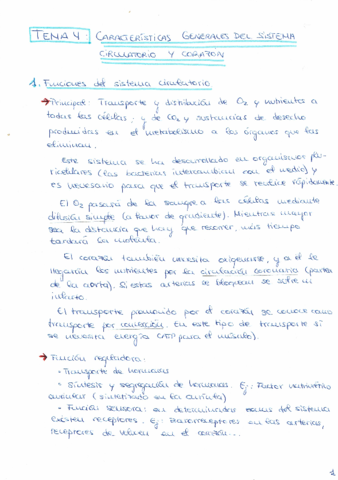 TEMA 4: CARACTERÍSTICAS GENERALES DEL SISTEMA
CIRCULATORIO Y CORAZÓN
1. Funciones del sistema circulatorio
→ Principal: Transporte y distribución de O2 y nutrientes a
todas las células; y de CO2 y sustancias de desecho
producidas en el metabolismo a los órganos que las
eliminan.
Este sistema se ha desarrollado en organismos plu-
ricelulares (las bacterias intercambian con el medio) y
es necesario para que el transporte se realice rápidamente.
El O2 pasará de la sangre a las células mediante
difusión simple (a favor de gradiente). Mientras mayor
sea la distancia que hay que recorrer, más tiempo
tardará la molécula.
El corazón también necesita oxigenarse, y a él le
llegarán los nutrientes por la circulación coronaria (parten
de la aorta). Si estas arterias se bloquean se sufre un
infarto
El transporte promovido por el corazón se conoce como
transporte por convección. En este tipo de transporte sí
se necesita energía (ATP para el músculo).
→ Función reguladora:
• Transporte de hormonas
• Síntesis y segregación de hormonas. Ej: Factor natriurético
auricular (sintetizado en la aurícula)
• Función sensora: en determinadas zonas del sistema
existen receptores. Ej: Barorreceptores en las arterias,
receptores de volumen en el corazón...
1